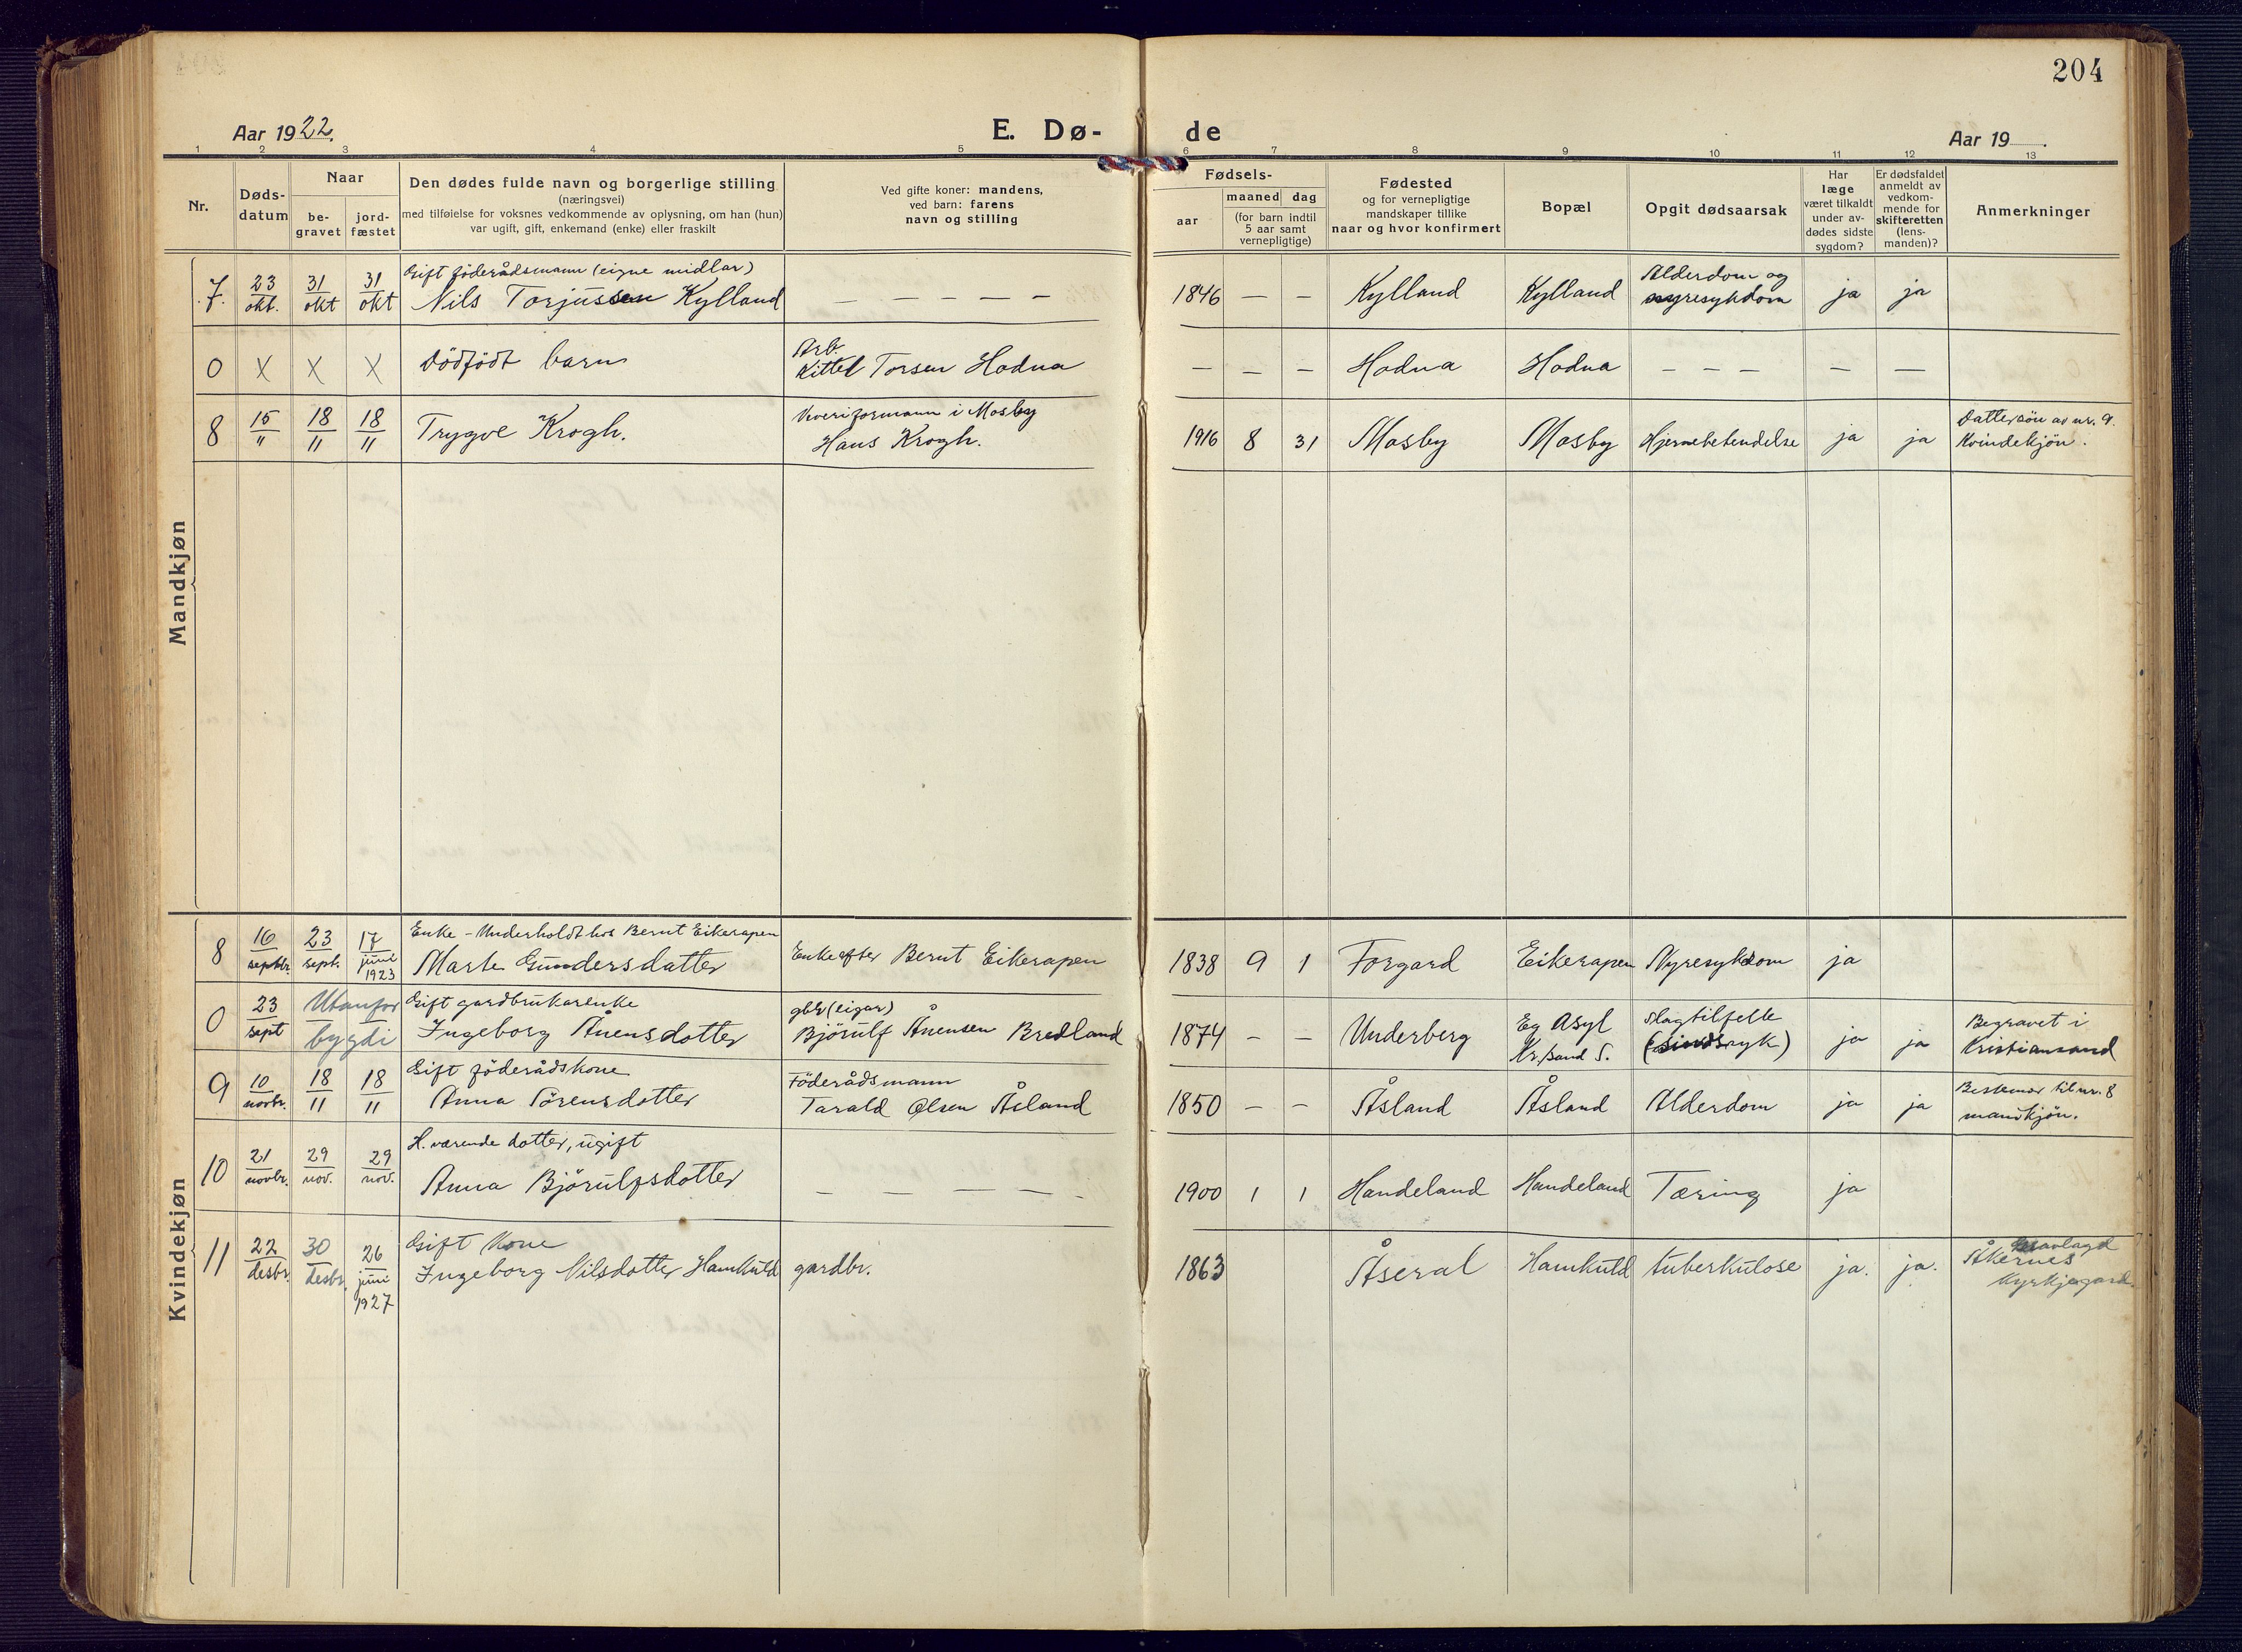 204
Aar 1922.
E. Dø-
de
Aar 19 .
1 2 3 4 5 6 7 8 9 10 11 12 13
Nr.
Døds-
datum
Naar
be-
gravet
jord-
fæstet
Den dødes fulde navn og borgerlige stilling
(næringsvei)
med tilføielse for voksnes vedkommende av oplysning, om han (hun)
var ugift, gift, enkemand (enke) eller fraskilt
Ved gifte koner: mandens,
ved barn: farens
navn og stilling
Fødsels-
aar
maaned dag
(for barn indtil
5 aar samt
vernepligtige)
Fødested
og for vernepligtige
mandskaper tillike
naar og hvor konfirmert
Bopæl
Opgit dødsaarsak
Har
læge
været tilkaldt
under av-
dødes sidste
sygdom?
Er dødsfaldet
anmeldt av
vedkom-
mende for
skifteretten
(lens-
manden)?
Anmerkninger
Mandkjøn
7. 23 okt. 31 okt 31 okt
Gift föderådsmann (eigne midlar)
Nils Torjussen Kylland
— — — — —
1846 — — Kylland Kylland
Alderdom og
nyresykdom
ja ja
0 X X X Dödfödt barn
Arb.
Kittel Torsen Hodna
— — — Hodna Hodna — — — — —
8 15 " 18 11 18 11 Trygve Krogh.
Hans Krogh.
1916 8 31 Mosby Mosby Hjernebetendelse ja ja
Dattersön av nr. 9.
Kvindekjön.
Kvindekjøn
8 16 septbr. 23 sept. 17 juni 1923
Enke - Underholdt hos Berut Eikerapen
Marte Gundersdatter
Enke efter Berut Eikerapen
1838 9 1 Forgard Eikerapen Nyresykdom ja
0 23 sept Utanfor
bygdi
Gift gardbrukarenke
Ingeborg Ånensdotter
gbr (eigar)
Björulf Ånensen Bredland
1874 - - Underberg
Eg Asyl
Kr.sand S.
Slagtilfelle
(sindsyk)
ja ja
Begravet i
Kristiansand
9 10 novbr. 18 11 18 11
Gift föderådskone
Anna Sörensdotter
Föderådsmann
Tarald Olsen Åsland
1850 - - Åsland Åsland Alderdom ja ja
Bestemor til nr. 8
mankjön.
10 21 novbr. 29 nov. 29 nov.
H. værende dotter, ugift
Anna Björulfsdotter
— — — — -
1900 1 1 Handeland Handeland Tæring ja
11 22 desbr. 30 desbr. 26 juni 1927
Gift Kone
Ingeborg Nilsdotter Hamkuld
gardbr.
1863 Åseral Hamkuld tuberkulose ja. ja.
Gravlagd
Åkernes
Kyrkjegard.